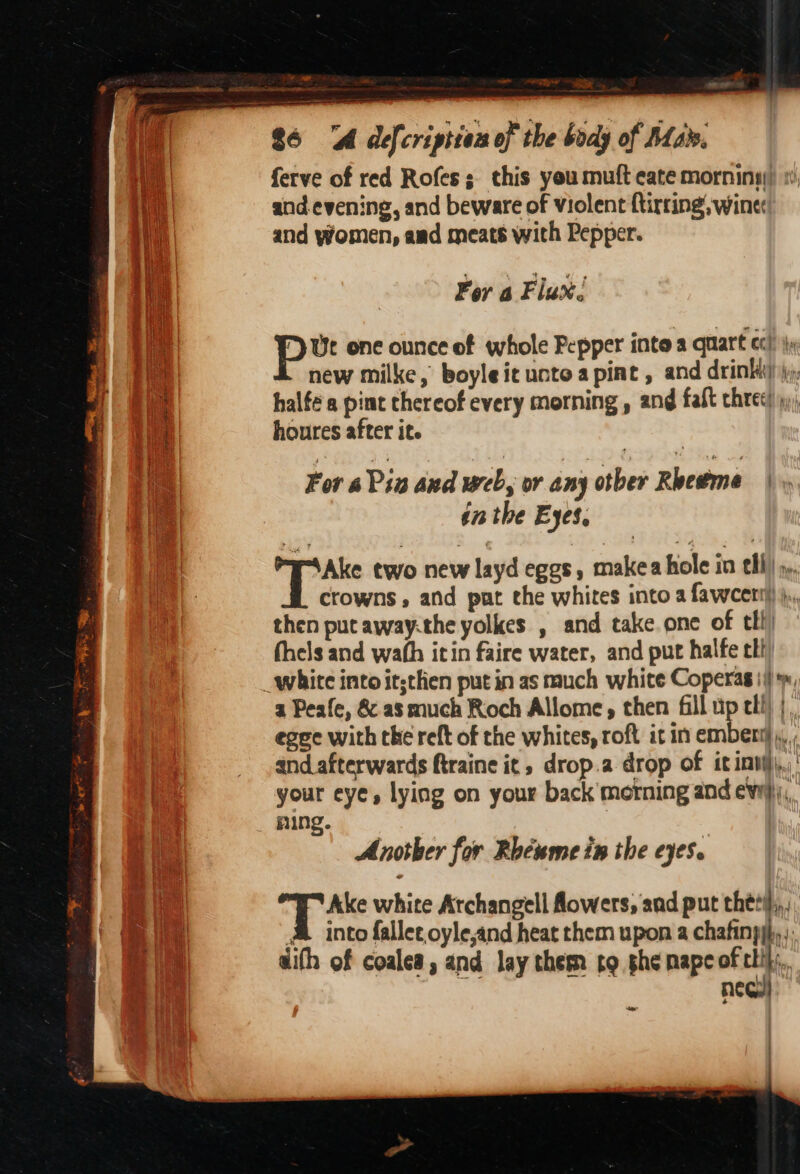 86 A deſcription of the body of Man.
ſerve of red Roſes; this you muſt eate morning
and evening, and beware of violent ſtirring, wine
and women, and meats with Pepper.
For a Flux.
PUt one ounce of whole Pepper into a quart
new milke, boyle it unto a pint, and drink
halfe a pint thereof every morning, and faſt three
houres after it.
For a Pin and web, or any other Rheume
in the Eyes.
TAke two new layd eggs, make a hole in
crowns, and put the whites into a ſawcer
then put away the yolkes, and take one of
ſhels and waſh it in faire water, and put halfe
white into it; then put in as much white Coperas
a Peaſe, & as much Roch Allome, then fill up
egge with the reſt of the whites, roſt it in embers
and afterwards ſtraine it, drop a drop of it
your eye, lying on your back morning and
ning.
Another for Rheume in the eyes.
TAke white Archangell flowers, and put
into ſallet oyle, and heat them upon a chafing
diſh of coales, and lay them to the nape of